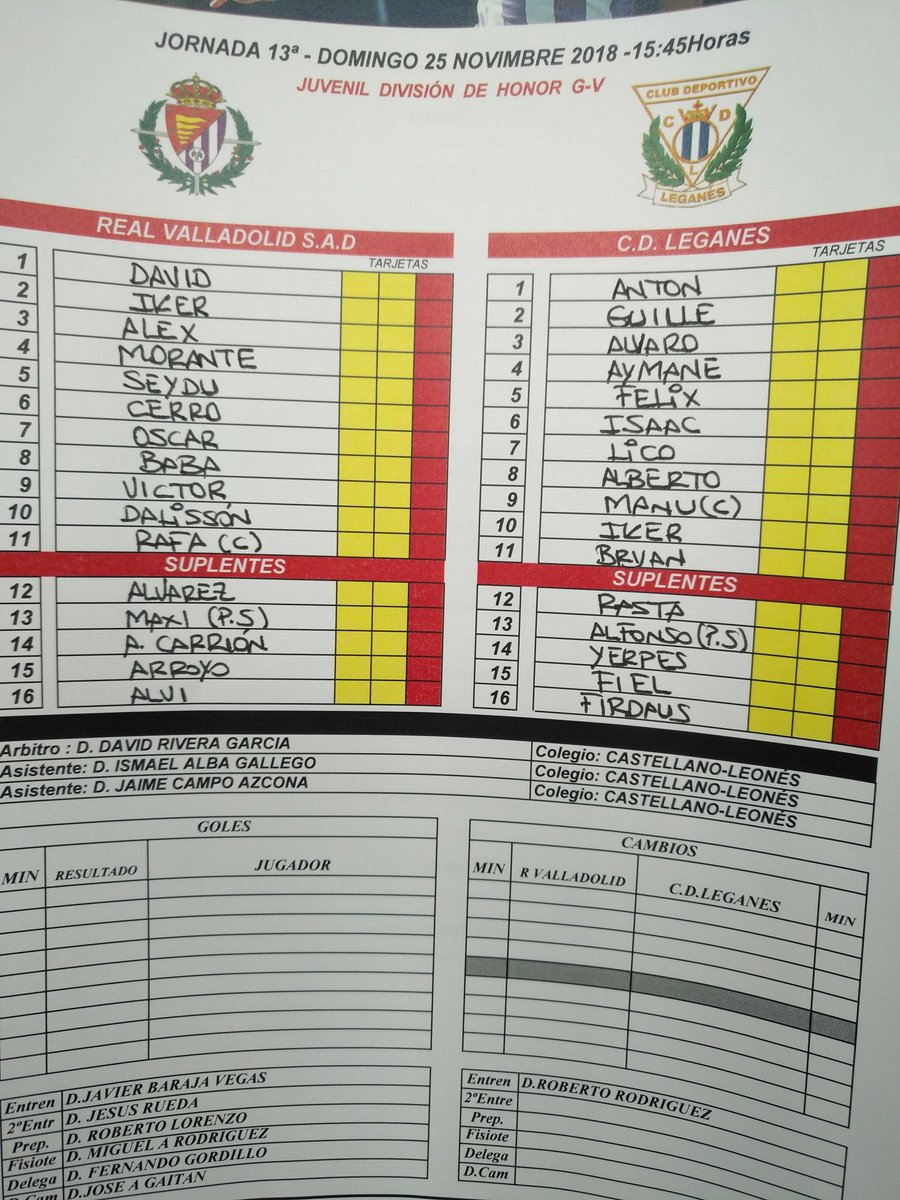 JORNADA 13ª - DOMINGO 25 NOVIMBRE 2018 -15:45Horas
JUVENIL DIVISIÓN DE HONOR G-V
CLUB DEPORTIVO
C D
L
LEGANÉS
REAL VALLADOLID S.A.D
TARJETAS
1 DAVID
2 IKER
3 ALEX
4 MORANTE
5 SEYDU
6 CERRO
7 OSCAR
8 BABA
9 VICTOR
10 DALISSÓN
11 RAFA (C)
SUPLENTES
12 ALVAREZ
13 MAXI (P.S)
14 A. CARRIÓN
15 ARROYO
16 ALVI
C.D. LEGANES
TARJETAS
1 ANTON
2 GUILLE
3 ALVARO
4 AYMANE
5 FELIX
6 ISAAC
7 LICO
8 ALBERTO
9 MANU(C)
10 IKER
11 BRYAN
SUPLENTES
12 RASTA
13 ALFONSO(P.S)
14 YERPES
15 FIEL
16 FIRDAUS
Arbitro : D. DAVID RIVERA GARCIA Colegio: CASTELLANO-LEONÉS
Asistente: D. ISMAEL ALBA GALLEGO Colegio: CASTELLANO-LEONÉS
Asistente: D. JAIME CAMPO AZCONA Colegio: CASTELLANO-LEONÉS
GOLES
MIN RESULTADO JUGADOR
CAMBIOS
MIN R VALLADOLID C.D.LEGANES MIN
Entren D.JAVIER BARAJA VEGAS
2ºEntr D. JESUS RUEDA
Prep. D. ROBERTO LORENZO
Fisiote D. MIGUEL A RODRIGUEZ
Delega D. FERNANDO GORDILLO
D.Cam D.JOSE A GAITAN
Entren D.ROBERTO RODRIGUEZ
2ºEntre
Prep.
Fisiote
Delega
D.Cam